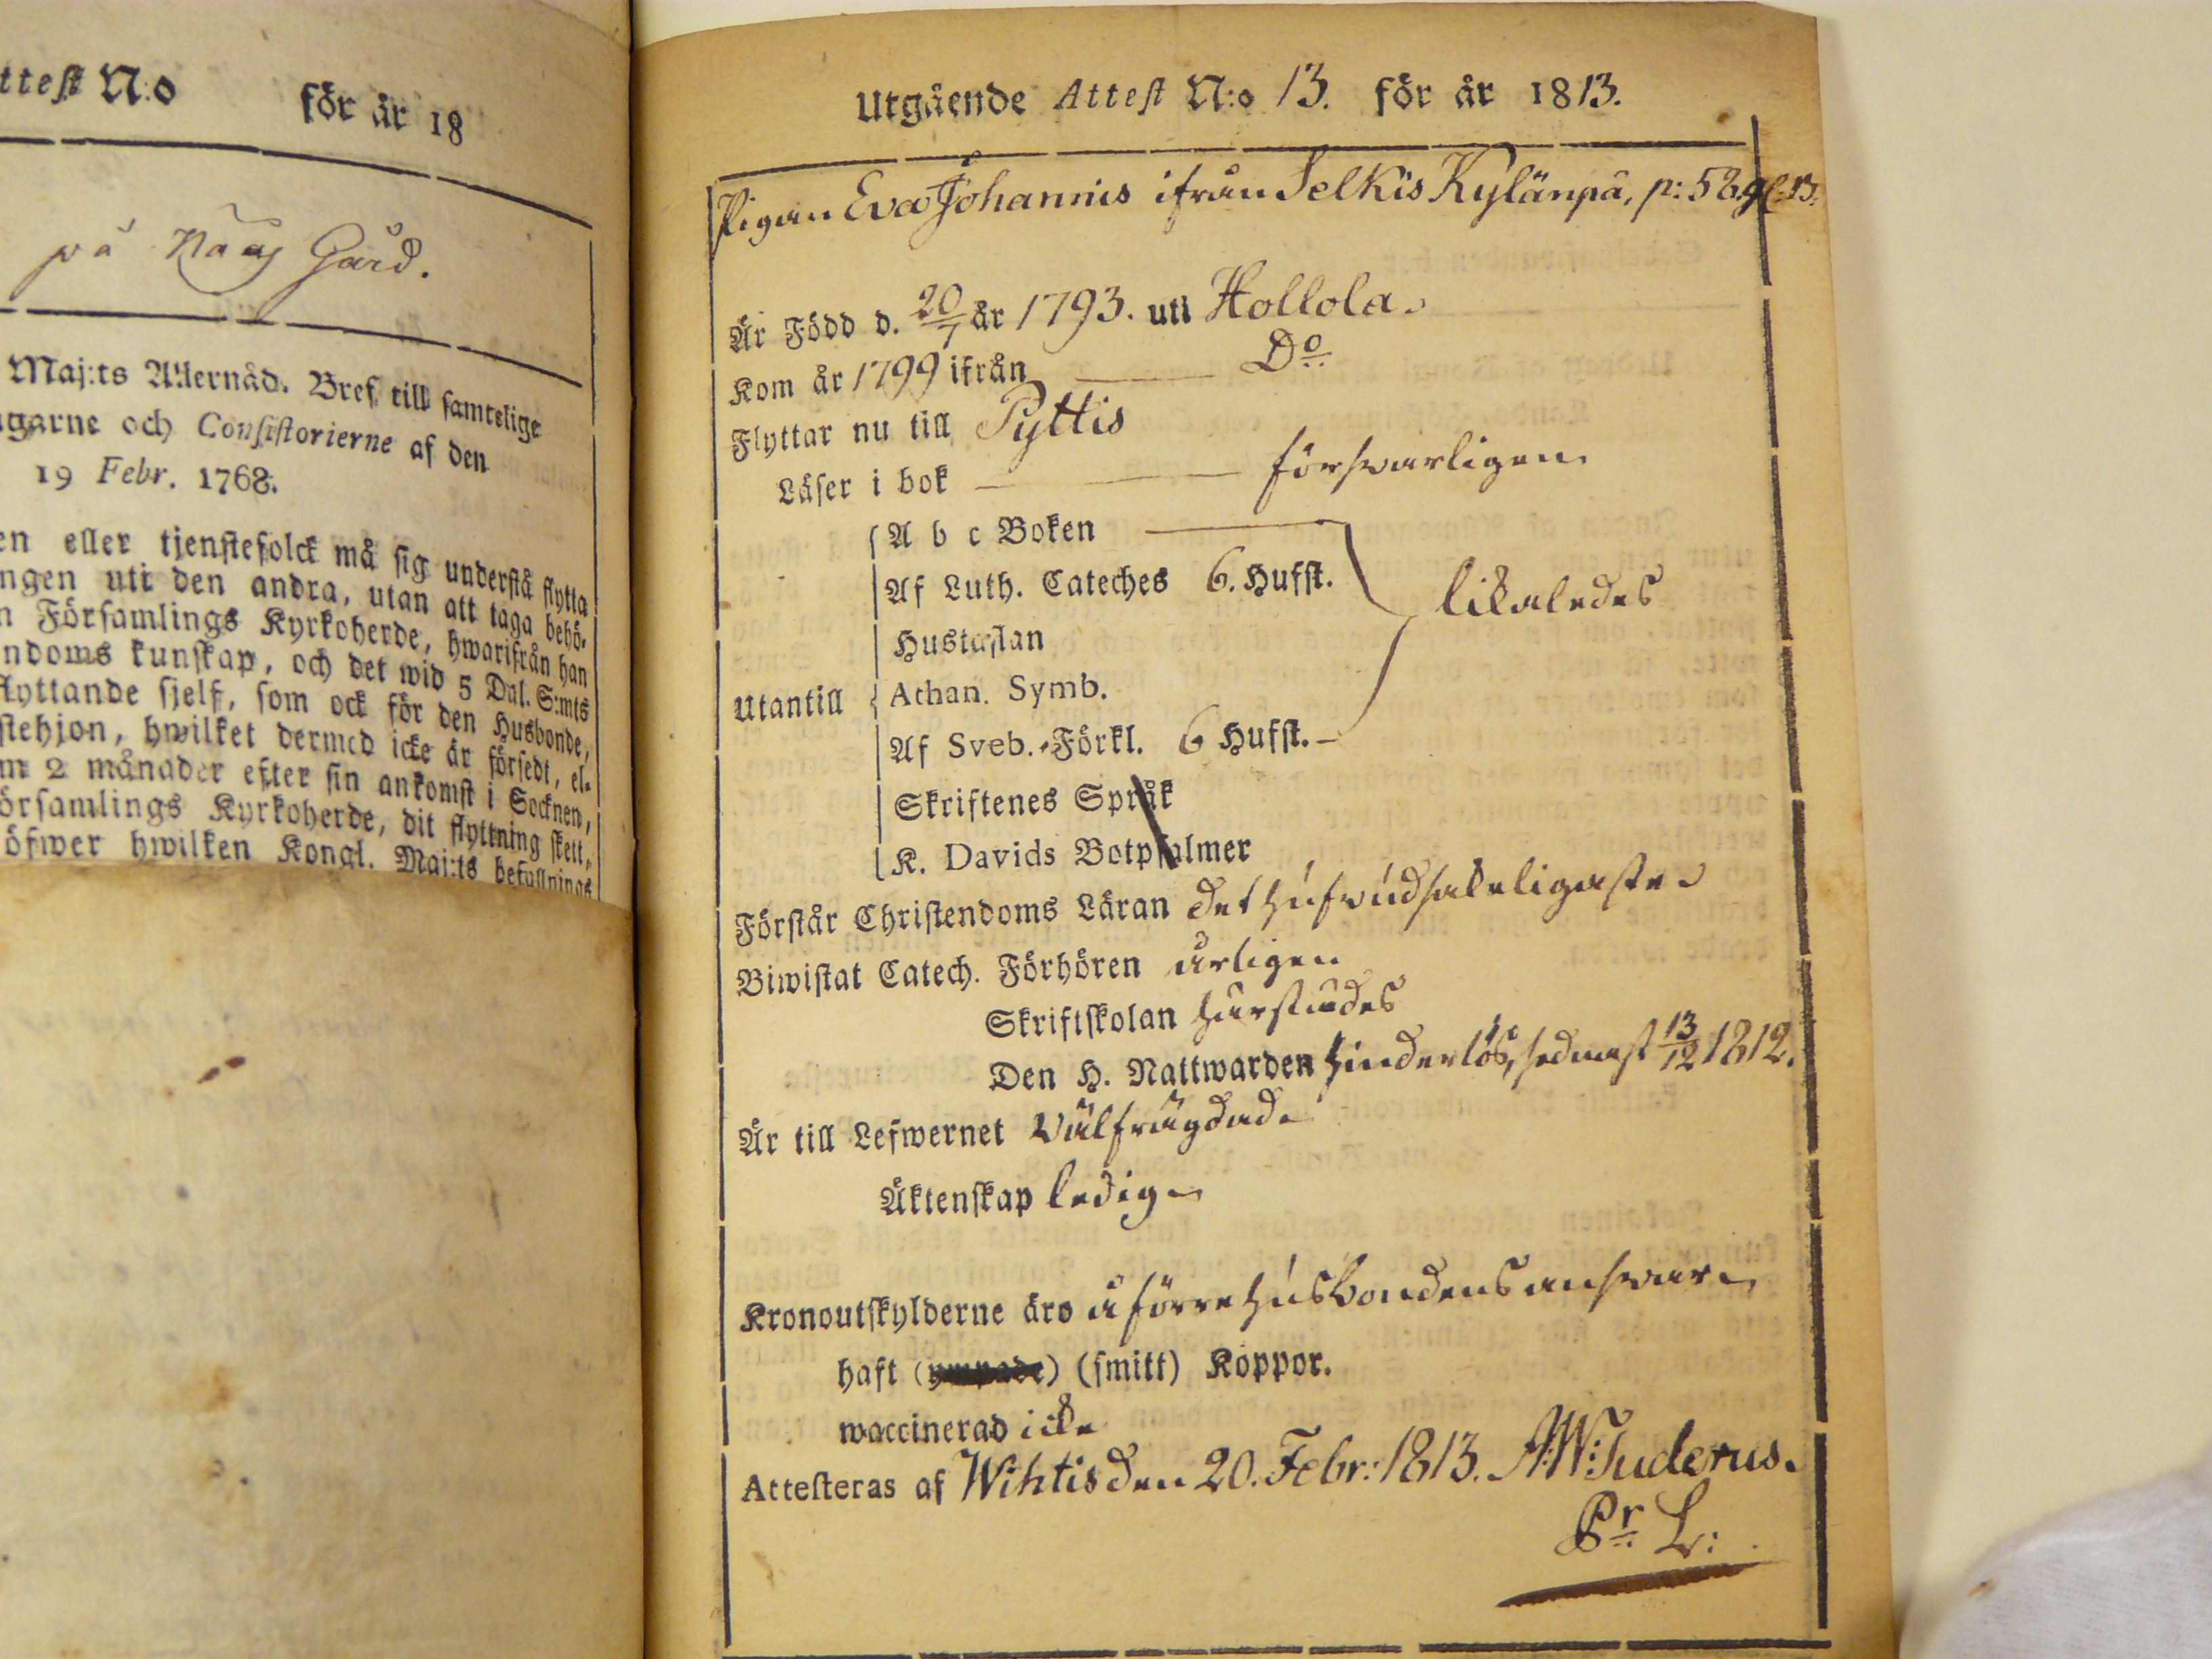 ttest N:o för år 18
på Naarg Gård.
Maj:ts Allernåd. Bref till samtelige
garne och Consistorierne af den
19 Febr. 1768.
en eller tjenstefolck må sig understå flytta
ngen uti den andra, utan att taga behö-
n Församlings Kyrkoherde, hwarifrån han
ndoms kunskap, och det wid 5 Dal. S:mts
flyttande sjelf, som ock för den Husbonde,
stehjon, hwilket dermed icke är försedt, el-
m 2 månader efter sin ankomst i Socknen,
örsamlings Kyrkoherde, dit flyttning skett,
öfwer hwilken Kongl. Maj:ts befallnings
Utgående Attest N:o 13. för år 1813.
Pigan Eva Johannis ifrån Selkis Kylänpä, p: 58.
Är Född d. 20/7 år 1793. uti Hollola.
Kom år 1799 ifrån D:o
Flyttar nu till Pyttis
Läser i bok försvarligen
A b c Boken
Af Luth. Cateches 6. Hufst. likaledes
Hustaflan
Utantill Athan. Symb.
Af Sveb. Förkl. 6 Hufst.
Skriftenes Språk
K. Davids Botpsalmer
Förstår Christendoms Läran det hufvudsakeligaste
Biwistat Catech. Förhören årligen
Skriftskolan härstädes
Den H. Nattwarden hinderlös, sednast 13/12 1812.
Är till Lefwernet välfrägdad
Äktenskap ledig
Kronoutskylderne äro å förre husbondens answar
haft (ympade) (smitt) Koppor.
waccinerad icke
Attesteras af Wihtis den 20. Febr: 1813. A:W: Tuderus.
Pr L: